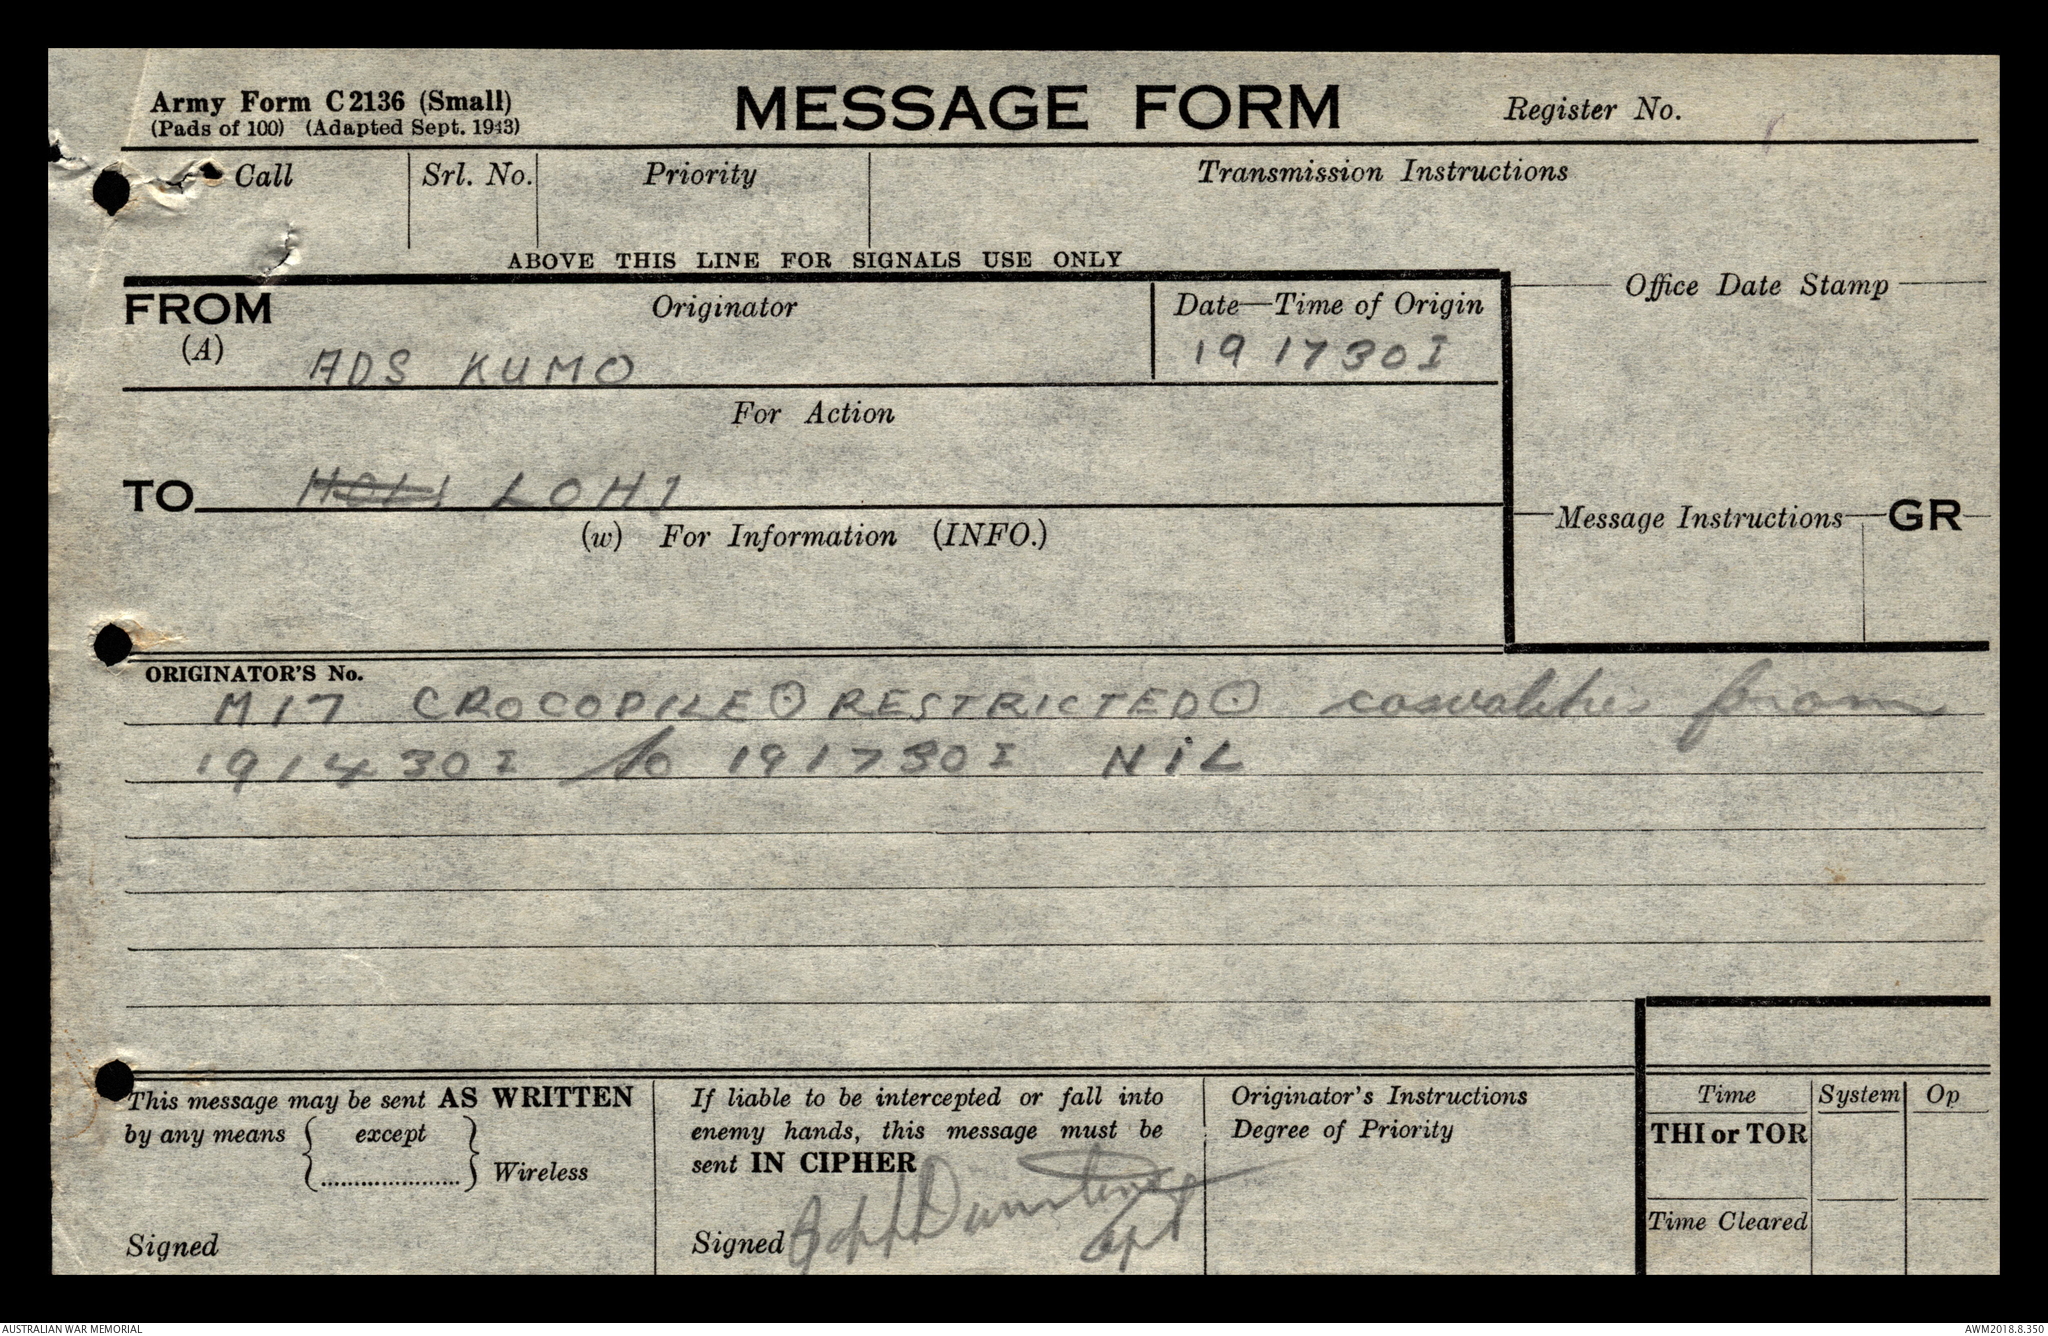 Army Form C2136 (Small)
(Pads of 100) (Adapted Sept. 1943)
MESSAGE FORM
Register No.
Call
Srl. No.
Priority
Transmission Instructions
ABOVE THIS LINE FOR SIGNALS USE ONLY
FROM
(A)
Originator
ADS KUMO
Date—Time of Origin
19 1730 I
Office Date Stamp
For Action
TO
HOLI LOHI
(w) For Information (INFO.)
Message Instructions
GR
ORIGINATOR'S No.
M17 CROCODILE ⊙ RESTRICTED ⊙ casualties from
191430 I to 191730 I NiL
This message may be sent AS WRITTEN
by any means { except
.....................} Wireless
Signed
If liable to be intercepted or fall into
enemy hands, this message must be
sent IN CIPHER
Signed
Capt
Originator's Instructions
Degree of Priority
Time
System
Op
THI or TOR
Time Cleared
AUSTRALIAN WAR MEMORIAL
AWM2018.8.350